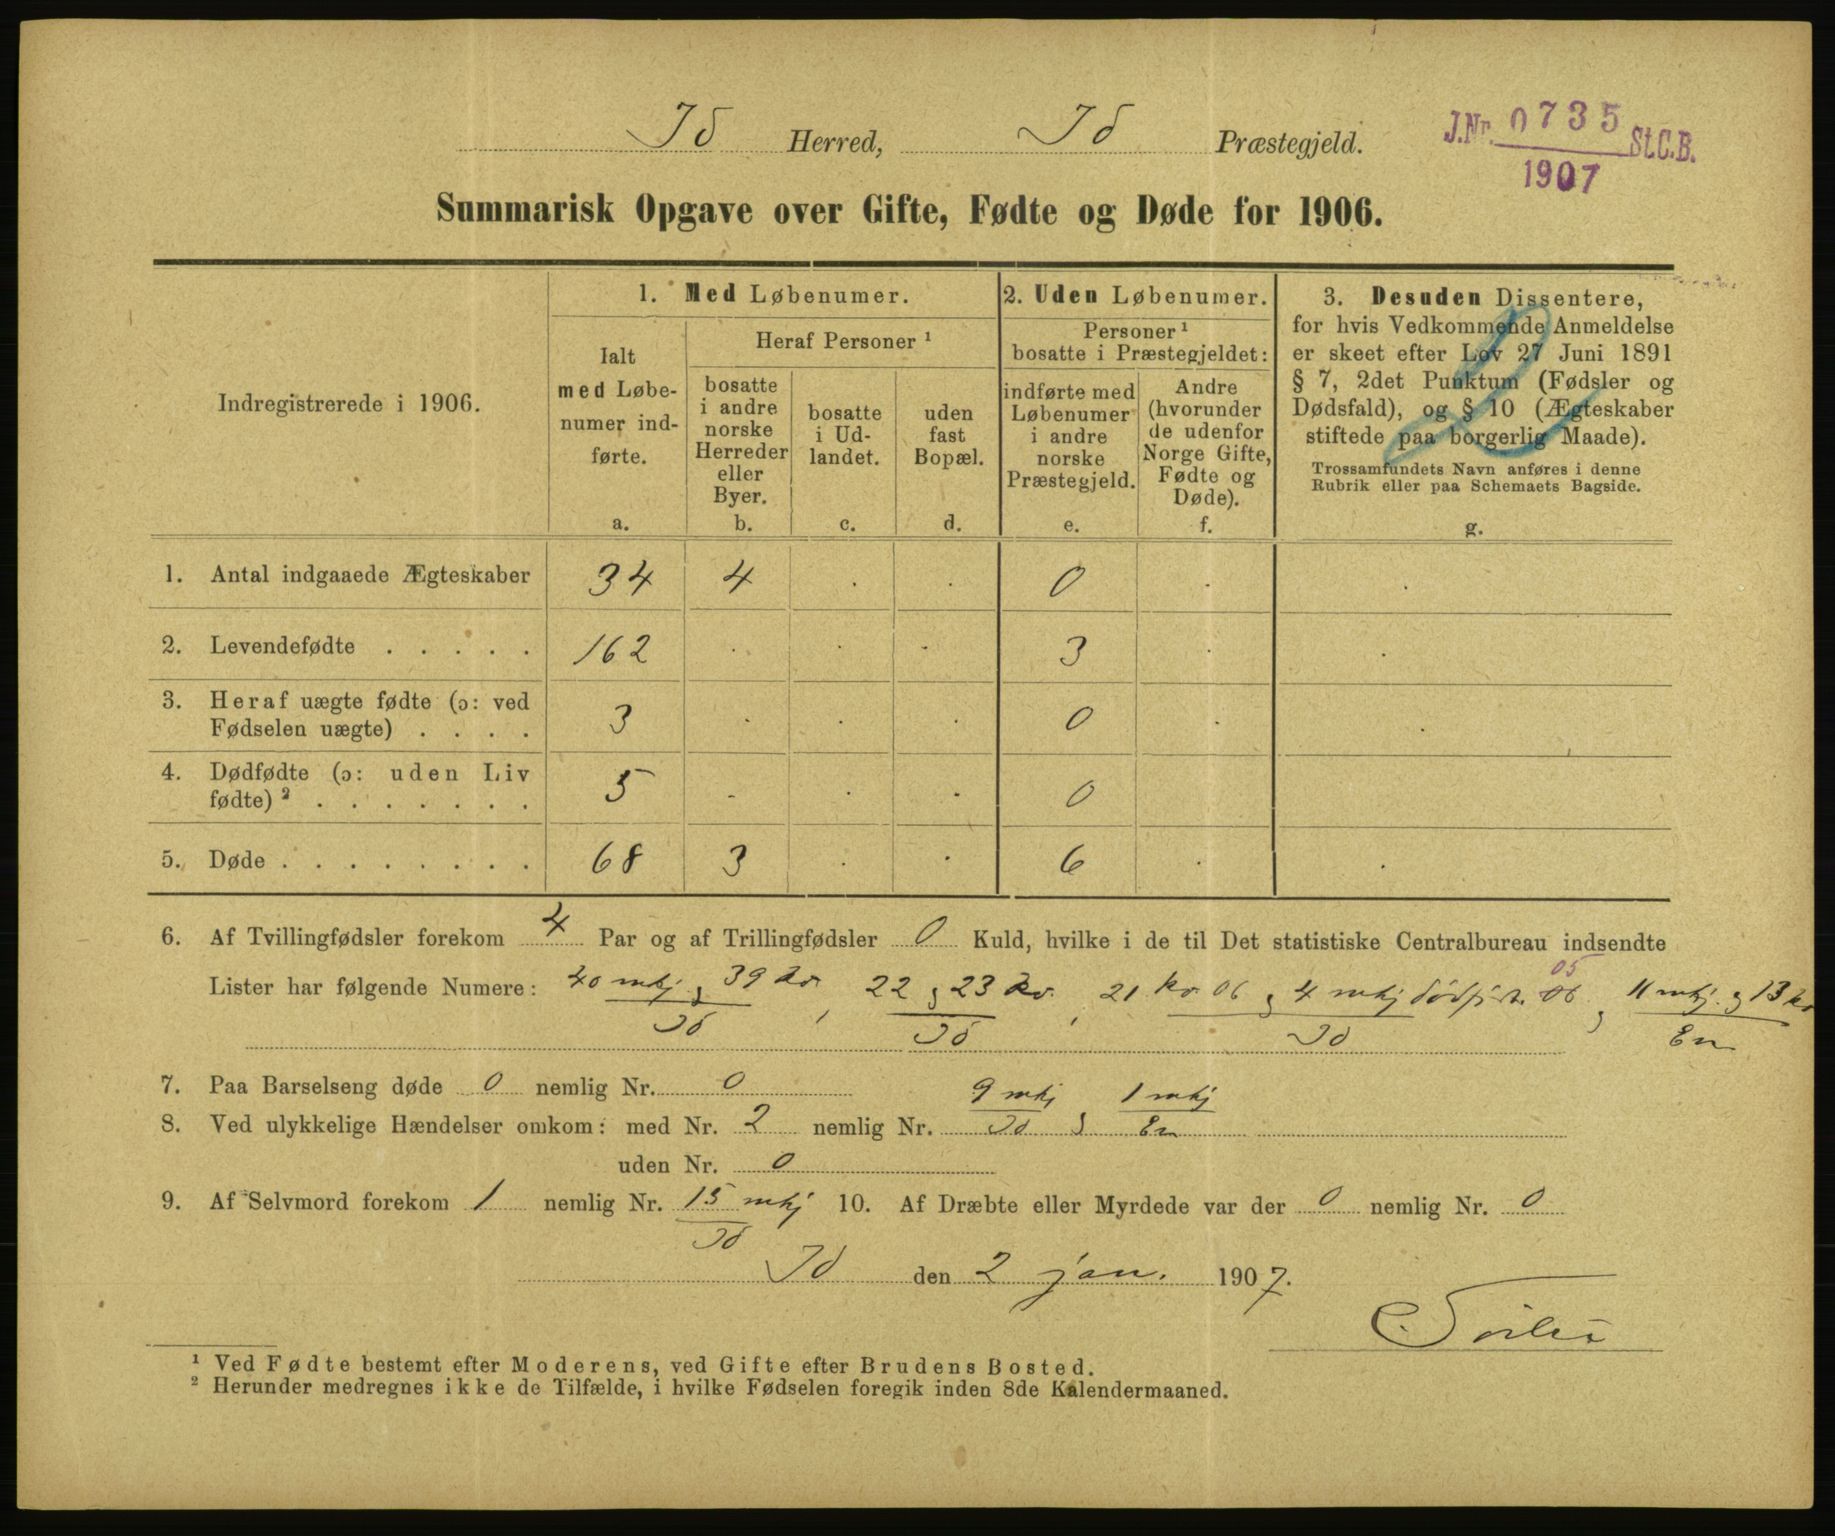 Id Herred, Id Præstegjeld.
J.Nr. 0735 St.C.B.
1907
Summarisk Opgave over Gifte, Fødte og Døde for 1906.
Indregistrerede i 1906.
1. Med Løbenumer.
Ialt
med Løbe-
numer ind-
førte.
a.
Heraf Personer ¹
bosatte
i andre
norske
Herreder
eller
Byer.
b.
bosatte
i Ud-
landet.
c.
uden
fast
Bopæl.
d.
2. Uden Løbenumer.
Personer ¹
bosatte i Præstegjeldet:
indførte med
Løbenumer
i andre
norske
Præstegjeld.
e.
Andre
(hvorunder
de udenfor
Norge Gifte,
Fødte og
Døde).
f.
3. Desuden Dissentere,
for hvis Vedkommende Anmeldelse
er skeet efter Lov 27 Juni 1891
§ 7, 2det Punktum (Fødsler og
Dødsfald), og § 10 (Ægteskaber
stiftede paa borgerlig Maade).
Trossamfundets Navn anføres i denne
Rubrik eller paa Schemaets Bagside.
g.
1. Antal indgaaede Ægteskaber 34 4 . . 0 . .
2. Levendefødte . . . . . 162 . . . 3 . .
3. Heraf uægte fødte (ɔ: ved
Fødselen uægte) . . . . 3 . . . 0 .
4. Dødfødte (ɔ: uden Liv
fødte) ² . . . . . . . 5 . . . 0
5. Døde . . . . . . . . 68 3 . . 6 . .
6. Af Tvillingfødsler forekom 4 Par og af Trillingfødsler 0 Kuld, hvilke i de til Det statistiske Centralbureau indsendte
05
Lister har følgende Numere: 40 mkj og 39 kv., 22 og 23 kv., 21 kv. 06 og 4 mkj dødf. 06, 11 mkj. og 13 kv
Id Id Id En
7. Paa Barselseng døde 0 nemlig Nr. 0
9 mkj 1 mkj
8. Ved ulykkelige Hændelser omkom: med Nr. 2 nemlig Nr. Id og En
uden Nr. 0
9. Af Selvmord forekom 1 nemlig Nr. 15 mkj 10. Af Dræbte eller Myrdede var der 0 nemlig Nr. 0
Id
Id den 2 jan. 1907.
¹ Ved Fødte bestemt efter Moderens, ved Gifte efter Brudens Bosted.
² Herunder medregnes ikke de Tilfælde, i hvilke Fødselen foregik inden 8de Kalendermaaned.